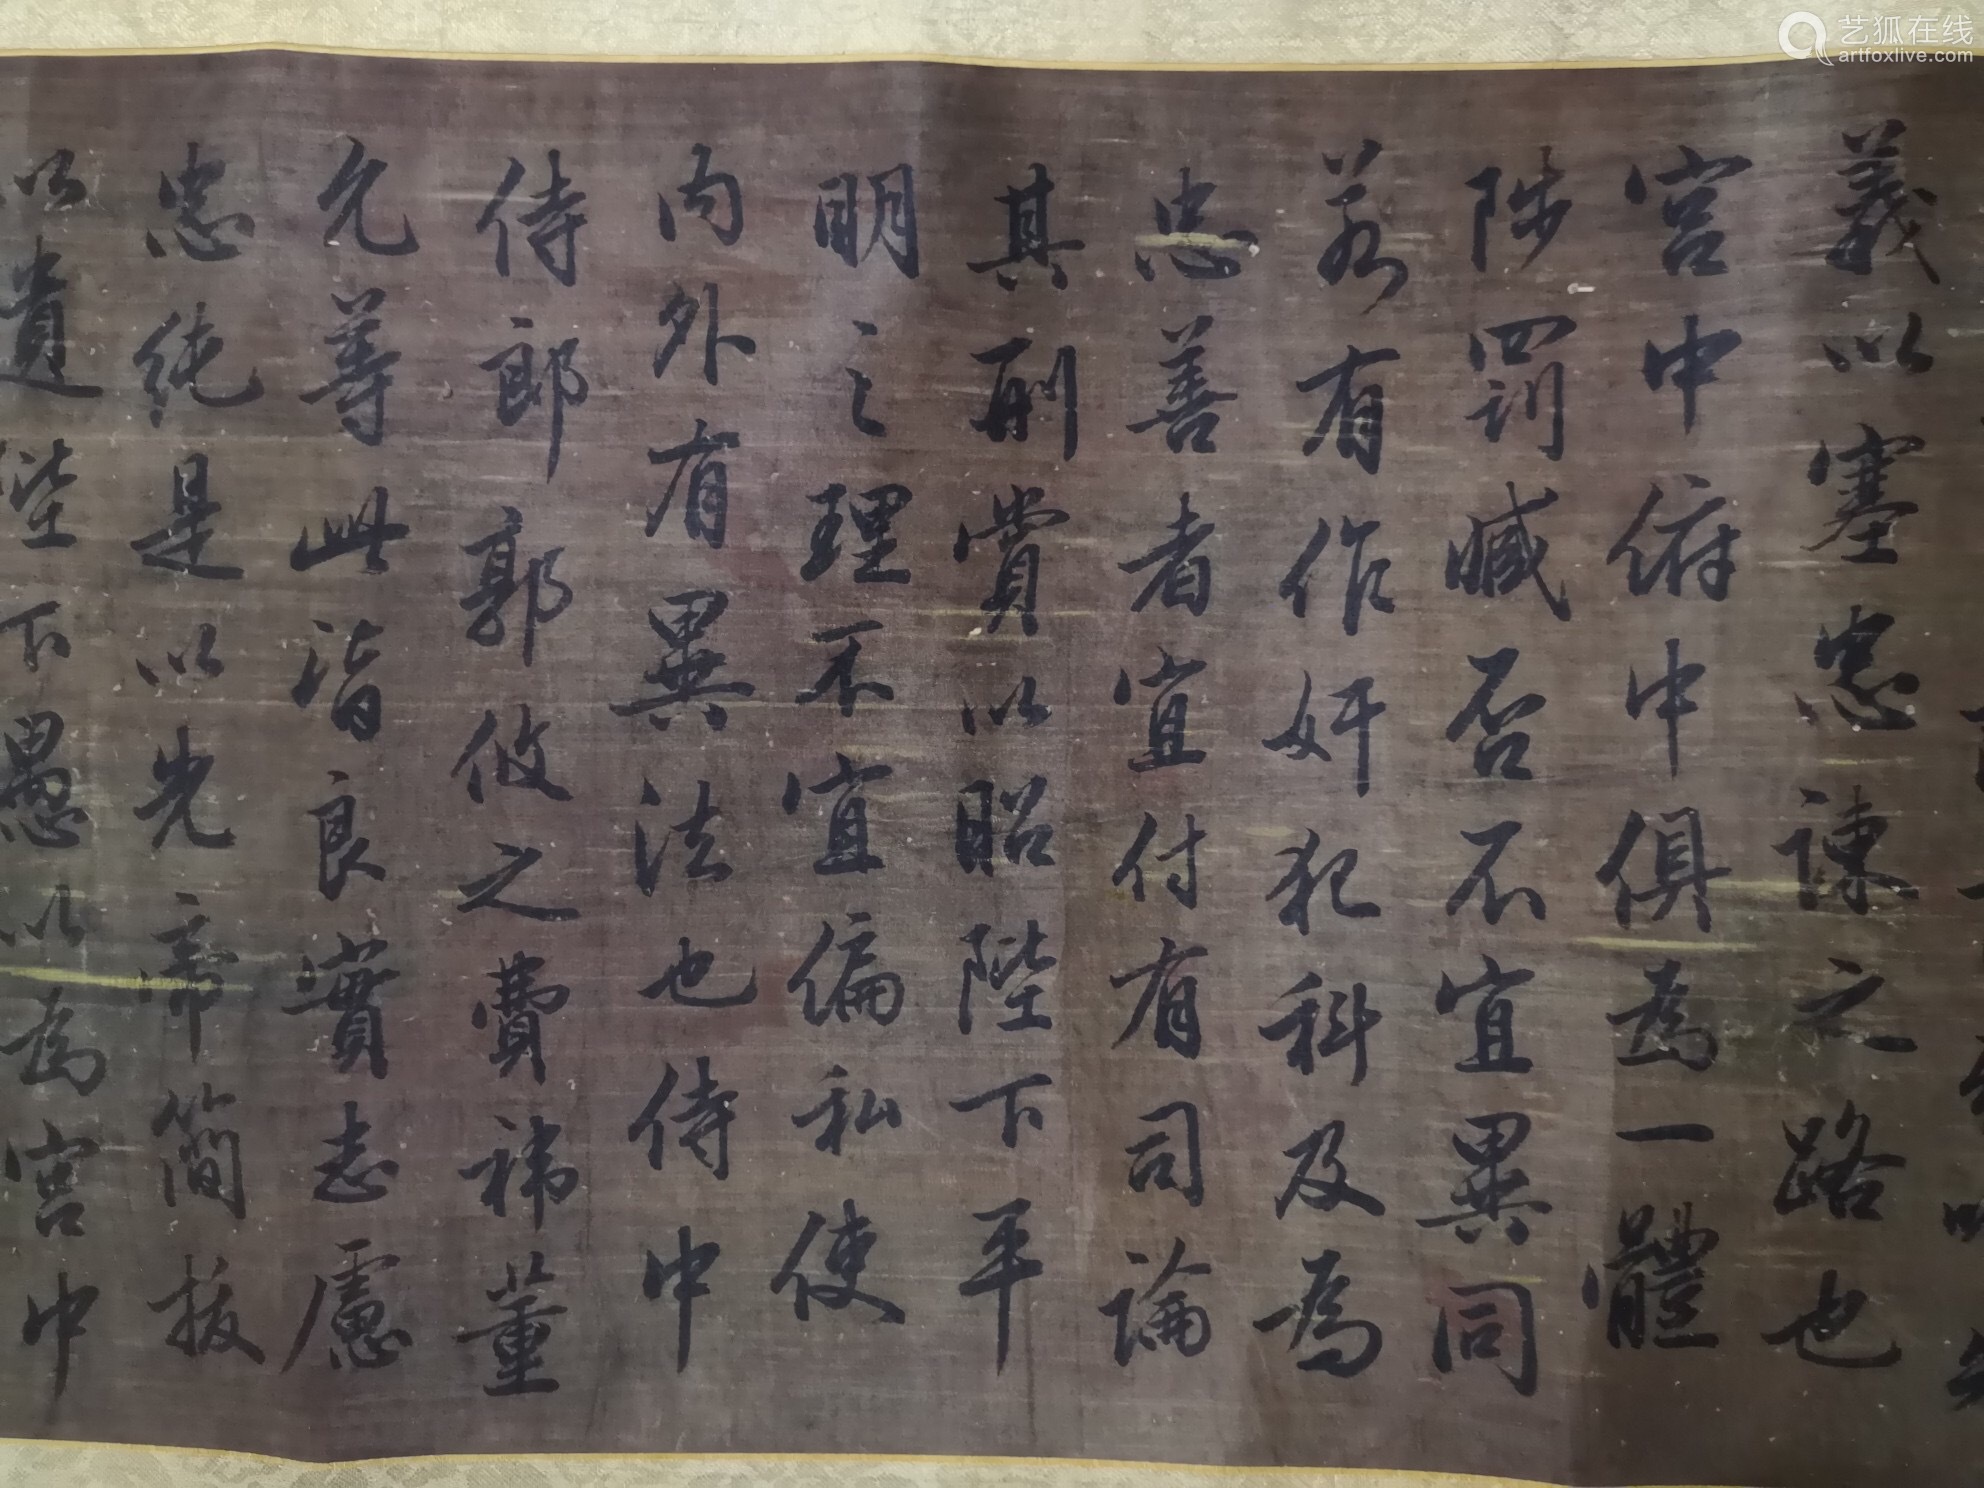 義以塞忠諫之路也
宮中俯中俱為一體
陟罰臧否不宜異同
若有作奸犯科及為
忠善者宜付有司論
其刑賞以昭陛下平
明之理不宜偏私使
內外有異法也侍中
侍郎郭攸之費禕董
允等此皆良實志慮
忠純是以先帝簡拔
以遺陛下愚以為宮中
艺狐在线
artfoxlive.com